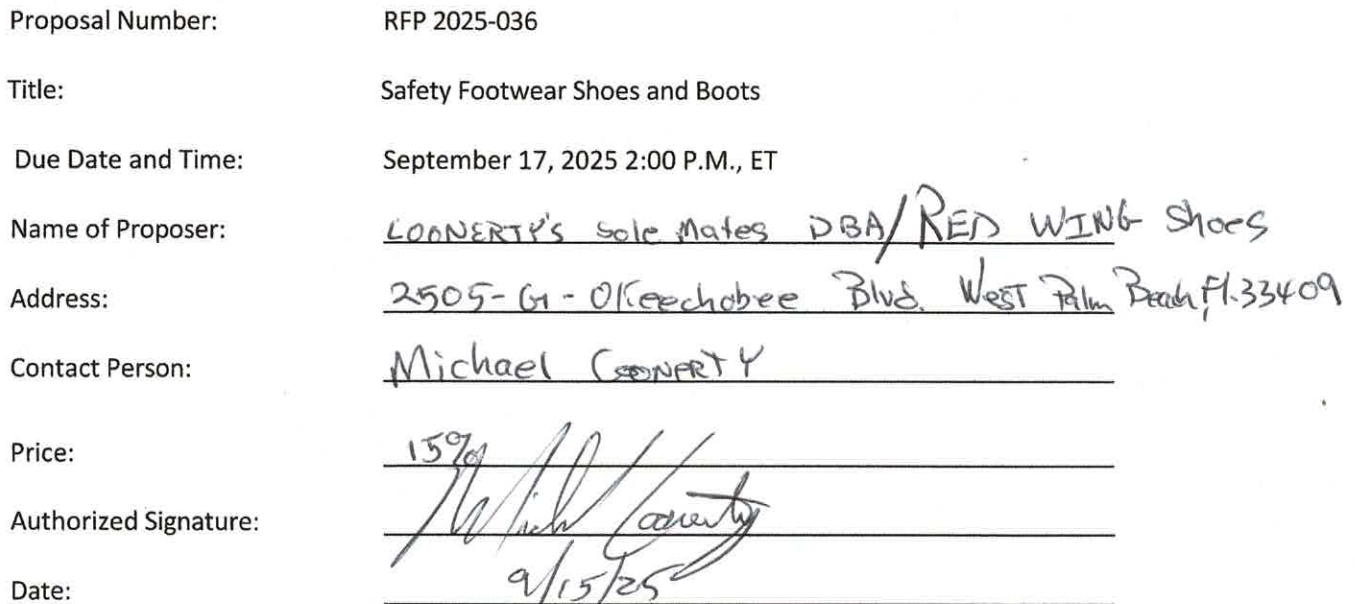 Proposal Number: RFP 2025-036
Title: Safety Footwear Shoes and Boots
Due Date and Time: September 17, 2025 2:00 P.M., ET
Name of Proposer: COONERTY'S Sole Mates DBA/RED WING Shoes
Address: 2505-G-OKeechobee Blvd. West Palm Beach, Fl. 33409
Contact Person: Michael COONERTY
Price: 15%
Authorized Signature: Mich Coonerty
Date: 9/15/25